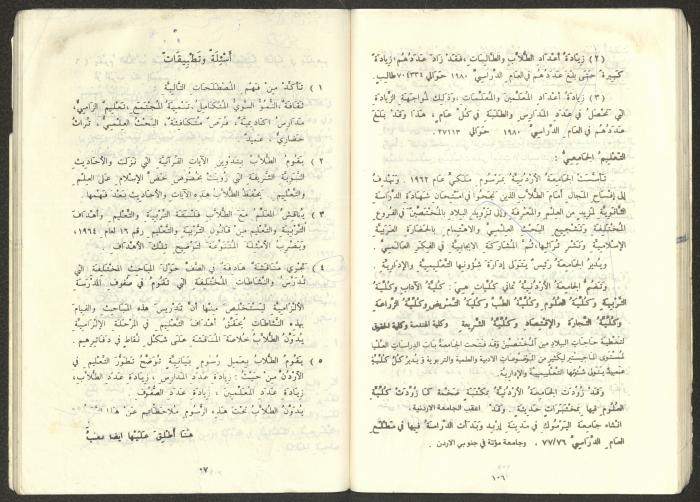 (٢) زيادة أعداد الطلاب والطالبات، فقد زاد عددهم زيادة
كبيرة حتى بلغ عددهم في العام الدراسي ١٩٨٠ حوالي ٧٠٤٣٣٤ طالب.
(٣) زيادة أعداد المعلمين والمعلمات، وذلك لمواجهة الزيادة
التي تحصل في عدد المدارس والطلبة في كل عام، هذا وقد بلغ
عددهم في العام الدراسي ١٩٨٠ حوالي ٢٧١١٣.
التعليم الجامعي :
تأسست الجامعة الأردنية بمرسوم ملكي عام ١٩٦٢. وتهدف
إلى إفساح المجال أمام الطلاب الذين نجحوا في امتحان شهادة الدراسة
الثانوية لمزيد من العلم والمعرفة وإلى تزويد البلاد بالمختصين في الفروع
المختلفة وتشجيع البحث العلمي والاهتمام بالحضارة العربية
الإسلامية ونشر تراثها، ثم المشاركة الايجابية في الفكر العالمي.
ويدير الجامعة رئيس يتولى إدارة شؤونها التعليمية والإدارية.
وتضم الجامعة الأردنية ثماني كليات هي: كلية الآداب وكلية
التربية وكلية العلوم وكلية الطب وكلية التمريض وكلية الزراعة
وكلية التجارة والاقتصاد وكلية الشريعة وكلية الهندسة وكلية الحقوق
لتغطية حاجات البلاد من المختصين وقد فتحت الجامعة باب الدراسات العليا
لمستوى الماجستير لكثير من الموضوعات الأدبية والعلمية والتربوية و يدير كل كلية
عميد يتولى شئونها التعليمية والإدارية.
وقد زودت الجامعة الأردنية بمكتبة ضخمة كما زودت كلية
العلوم فيها بمختبرات حديثة. وقد اعقب الجامعة الاردنية،
انشاء جامعة اليرموك في مدينة إربد وبدأت الدراسة فيها في مطلع
العام الدراسي ٧٧/٧٦ وجامعة مؤتة في جنوبي الاردن.
١٠٦
أسئلة وتطبيقات
١) تأكد من فهم المصطلحات التالية
ثقافة، النمو السوي المتكامل، تنمية المجتمع، تعليم إلزامي،
مدارس أكاديمية، فرص متكافئة، البحث العلمي، تراث
حضاري، عميد
٢) يقوم الطلاب بتدوين الآيات القرآنية التي نزلت والأحاديث
النبوية الشريفة التي رويت بخصوص حض الإسلام على العلم
والتعليم. يحفظ الطلاب هذه الآيات والأحاديث بعد فهمها.
٣) يناقش المعلم مع الطلاب فلسفة التربية والتعليم وأهداف
التربية والتعليم من قانون التربية والتعليم رقم ١٦ لعام ١٩٦٤،
ويضرب الأمثلة المتنوعة لتوضيح تلك الأهداف.
٤) تجري مناقشة هادفة في الصف حول المباحث المختلفة التي
تدرس والنشاطات المختلفة التي تقوم في صفوف المدرسة
الإلزامية ليستخلص منها أن تدريس هذه المباحث والقيام
بهذه النشاطات يحقق أهداف التعليم في المرحلة الإلزامية
يدون الطلاب خلاصة المناقشة على شكل نقاط في دفاترهم.
٥) يقوم الطلاب بعمل رسوم بيانية توضح تطور التعليم في
الأردن من حيث: زيادة عدد المدارس، زيادة عدد الطلاب،
زيادة عدد المعلمين، زيادة عدد الصفوف.
يدون الطلاب تحت هذه الرسوم ملاحظاتهم عن هذا